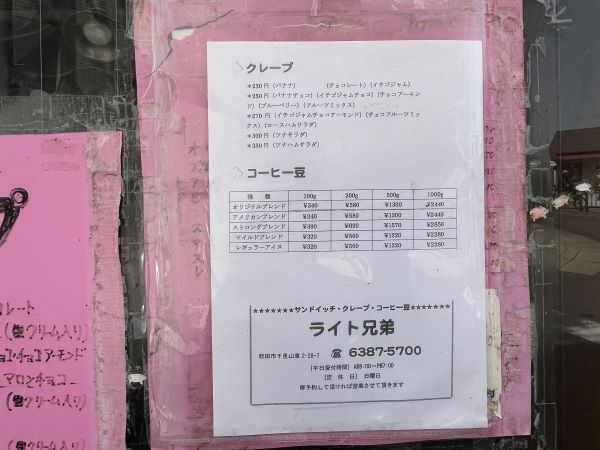 クレープ
*230円(バナナ) (チョコレート)(イチゴジャム)
*250円(バナナチョコ)(イチゴジャムチョコ)(チョコアーモン
ド)(ブルーベリー)(フルーツミックス)
*270円(イチゴジャムチョコアーモンド)(チョコフルーツミッ
クス)(ロースハムサラダ)
*300円(ツナサラダ)
*350円(ツナハムサラダ)
コーヒー豆
種類 100g 200g 500g 1000g
オリジナルブレンド ¥340 ¥580 ¥1300 ¥2440
アメリカンブレンド ¥340 ¥580 ¥1300 ¥2440
ストロングブレンド ¥390 ¥690 ¥1570 ¥2850
マイルドブレンド ¥320 ¥560 ¥1220 ¥2280
レギュラーアイス ¥320 ¥560 ¥1220 ¥2280
★★★★★★★サンドイッチ・クレープ・コーヒー豆★★★★★★★
ライト兄弟
吹田市千里山東2-28-7 ☎ 6387-5700
[平日受付時間] AM9:00〜PM7:00
[定 休 日] 日曜日
御予約して頂ければ営業させて頂きます
コレート
(生クリーム入り)
チョコ・チョコアーモンド
マロンチョコ
(生クリーム入り)
(生クリーム入り)